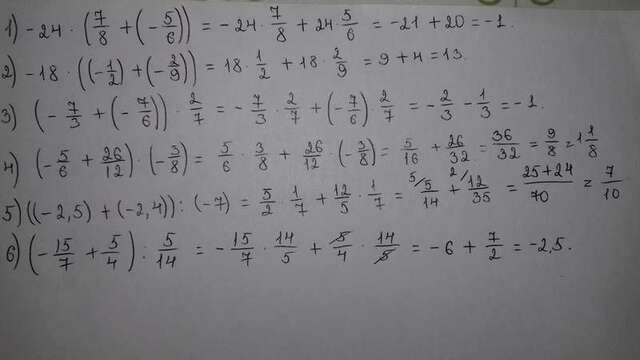 1) -24 · (7/8 + (-5/6)) = -24 · 7/8 + 24 · 5/6 = -21 + 20 = -1.
2) -18 · ((-1/2) + (-2/9)) = 18 · 1/2 + 18 · 2/9 = 9 + 4 = 13
3) (-7/3 + (-7/6)) · 2/7 = -7/3 · 2/7 + (-7/6) · 2/7 = -2/3 - 1/3 = -1.
4) (-5/6 + 26/12) · (-3/8) = 5/6 · 3/8 + 26/12 · (-3/8) = 5/16 + 26/32 = 36/32 = 9/8 = 1 1/8
5) ((-2,5) + (-2,4)) : (-7) = 5/2 · 1/7 + 12/5 · 1/7 = 5/14 + 12/35 = 25+24/70 = 7/10
6) (-15/7 + 5/4) : 5/14 = -15/7 · 14/5 + 5/4 · 14/5 = -6 + 7/2 = -2,5.